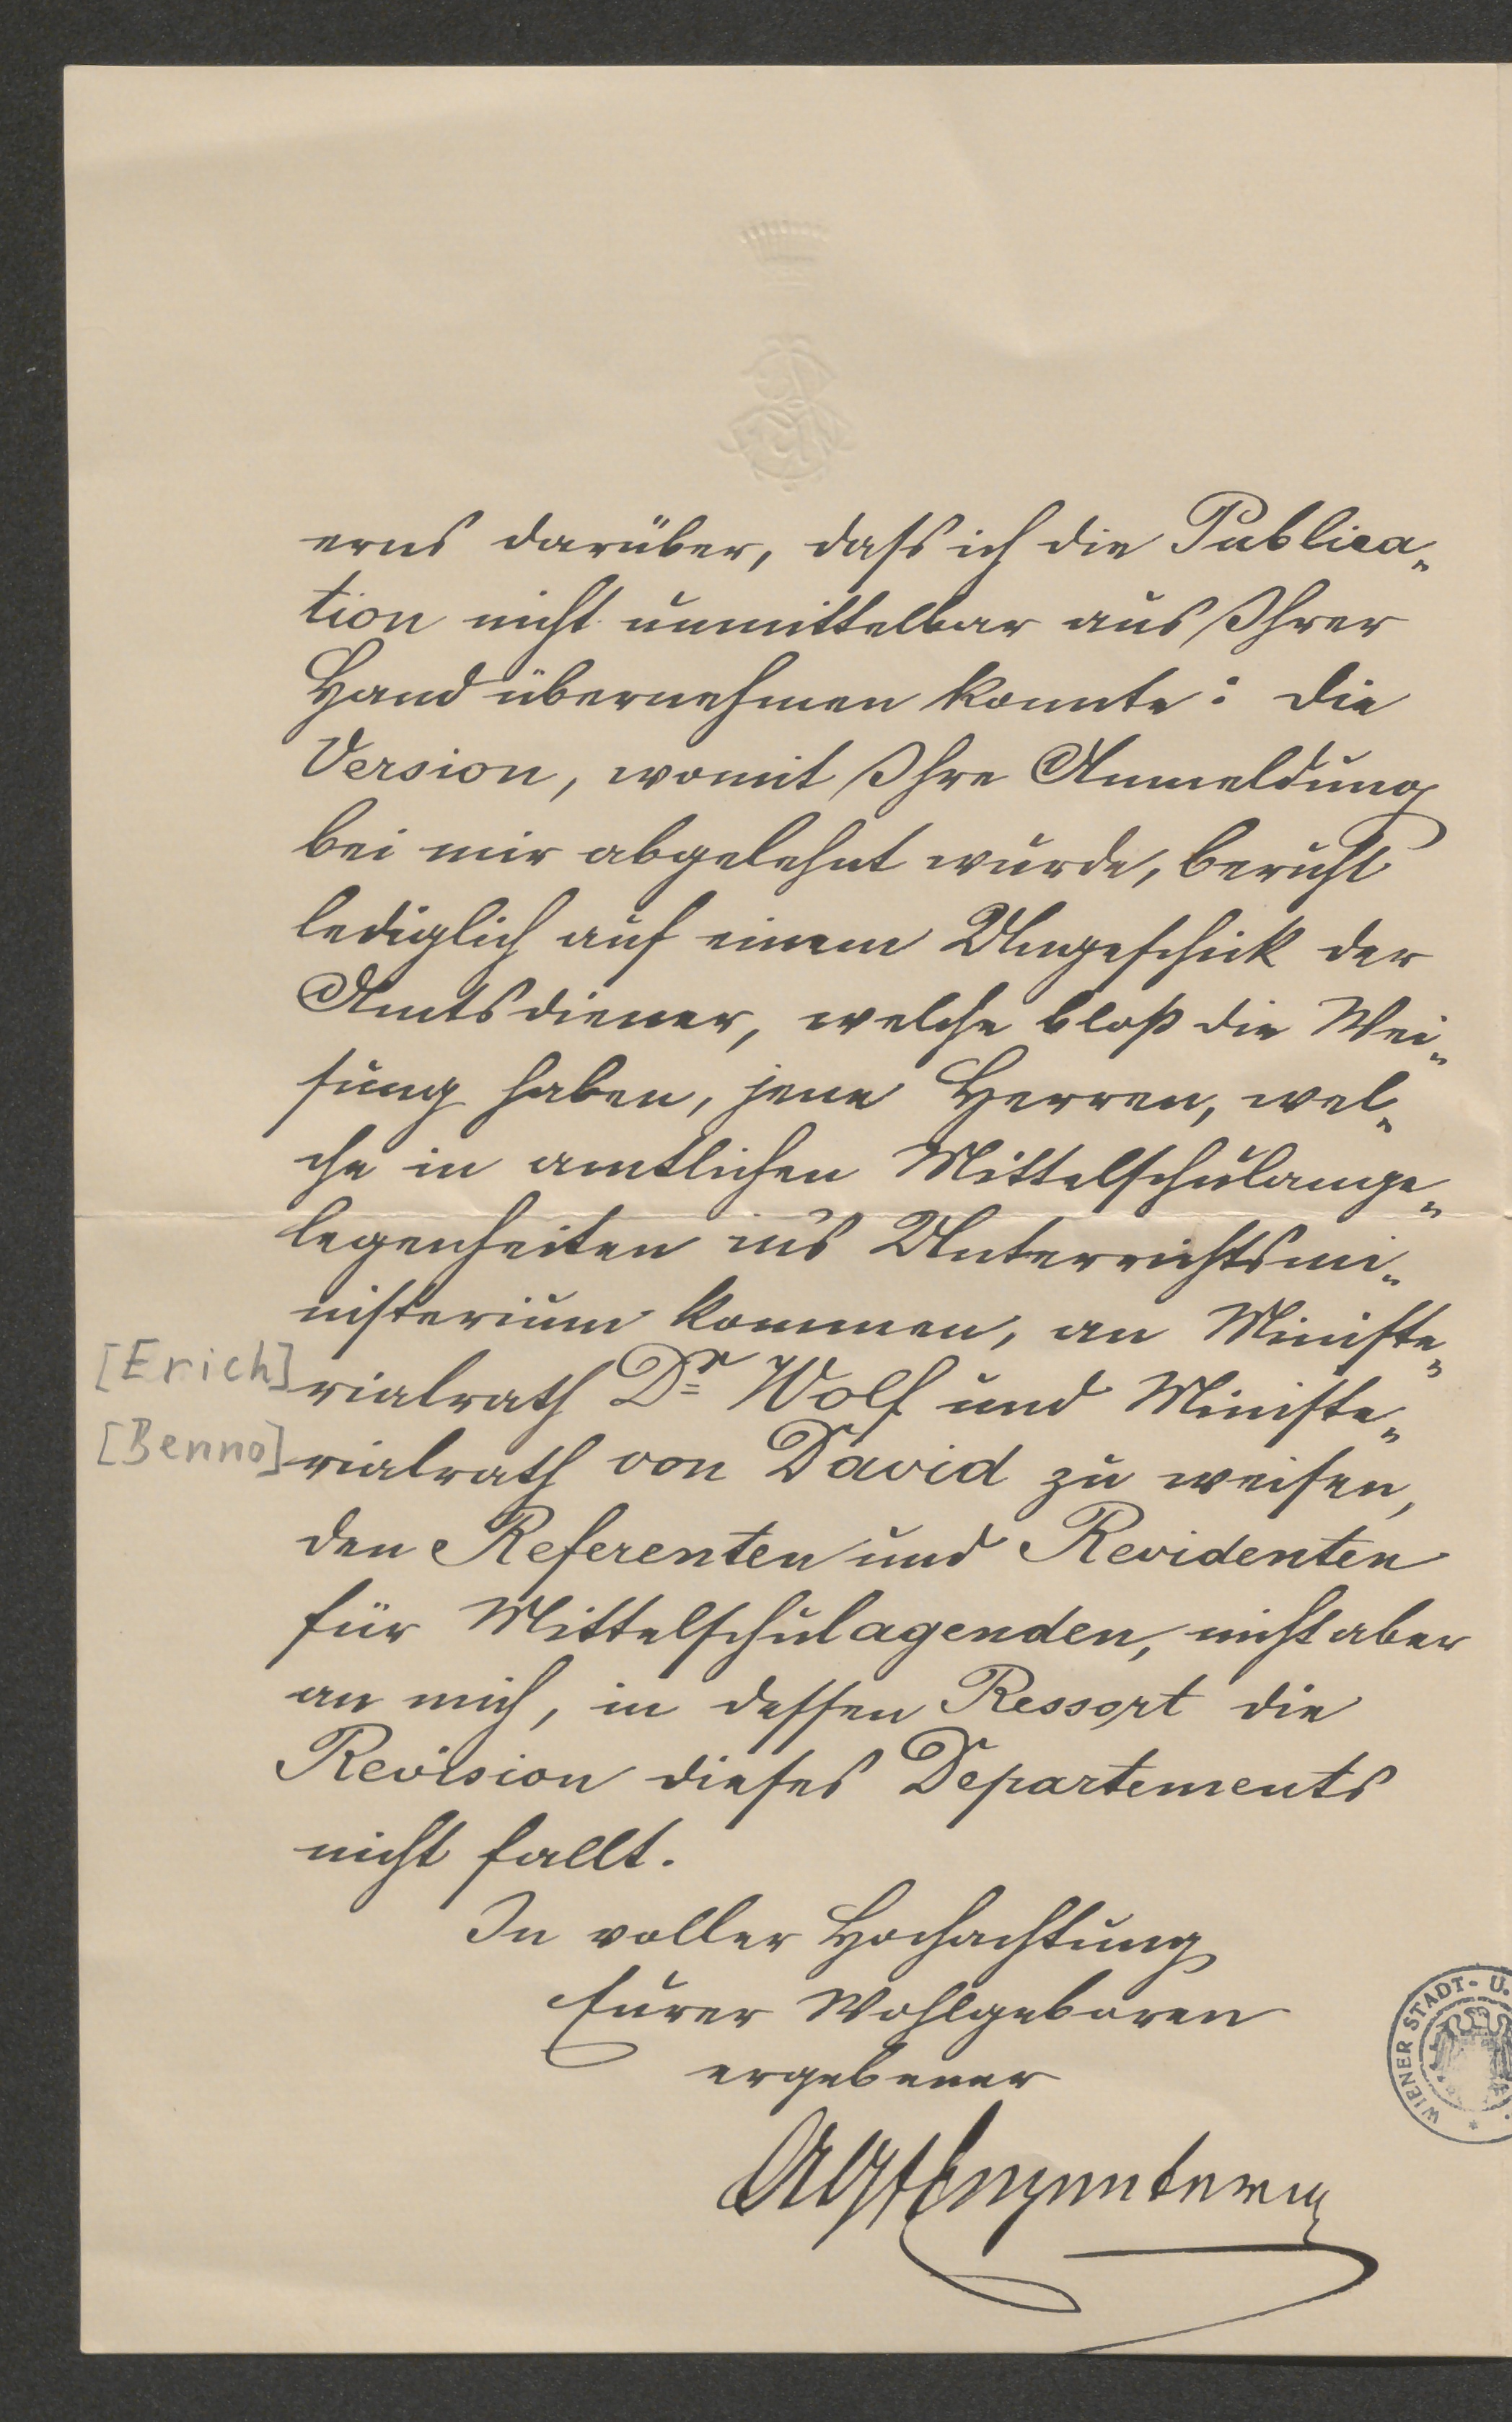 erns darüber, dass ich die Publica-
tion nicht unmittelbar aus Ihrer
Hand übernehmen konnte: die
Version, womit Ihre Anmeldung
bei mir abgelehnt wurde, beruht
lediglich auf einem Ungeschick der
Amtsdiener, welche bloß die Wei-
sung haben, jene Herren, wel-
che in amtlichen Mittelschulange-
legenheiten in's Unterrichtsmi-
nisterium kommen, an Ministe-
[Erich] rialrath Dr Wolf und Ministe-
[Benno] rialrath von David zu weisen,
den Referenten und Revidenten
für Mittelschulagenden, nicht aber
an mich, in dessen Ressort die
Revision dieses Departements
nicht fallt.
In voller Hochachtung
Eurer Wohlgeboren
ergebener
WIENER STADT- U.